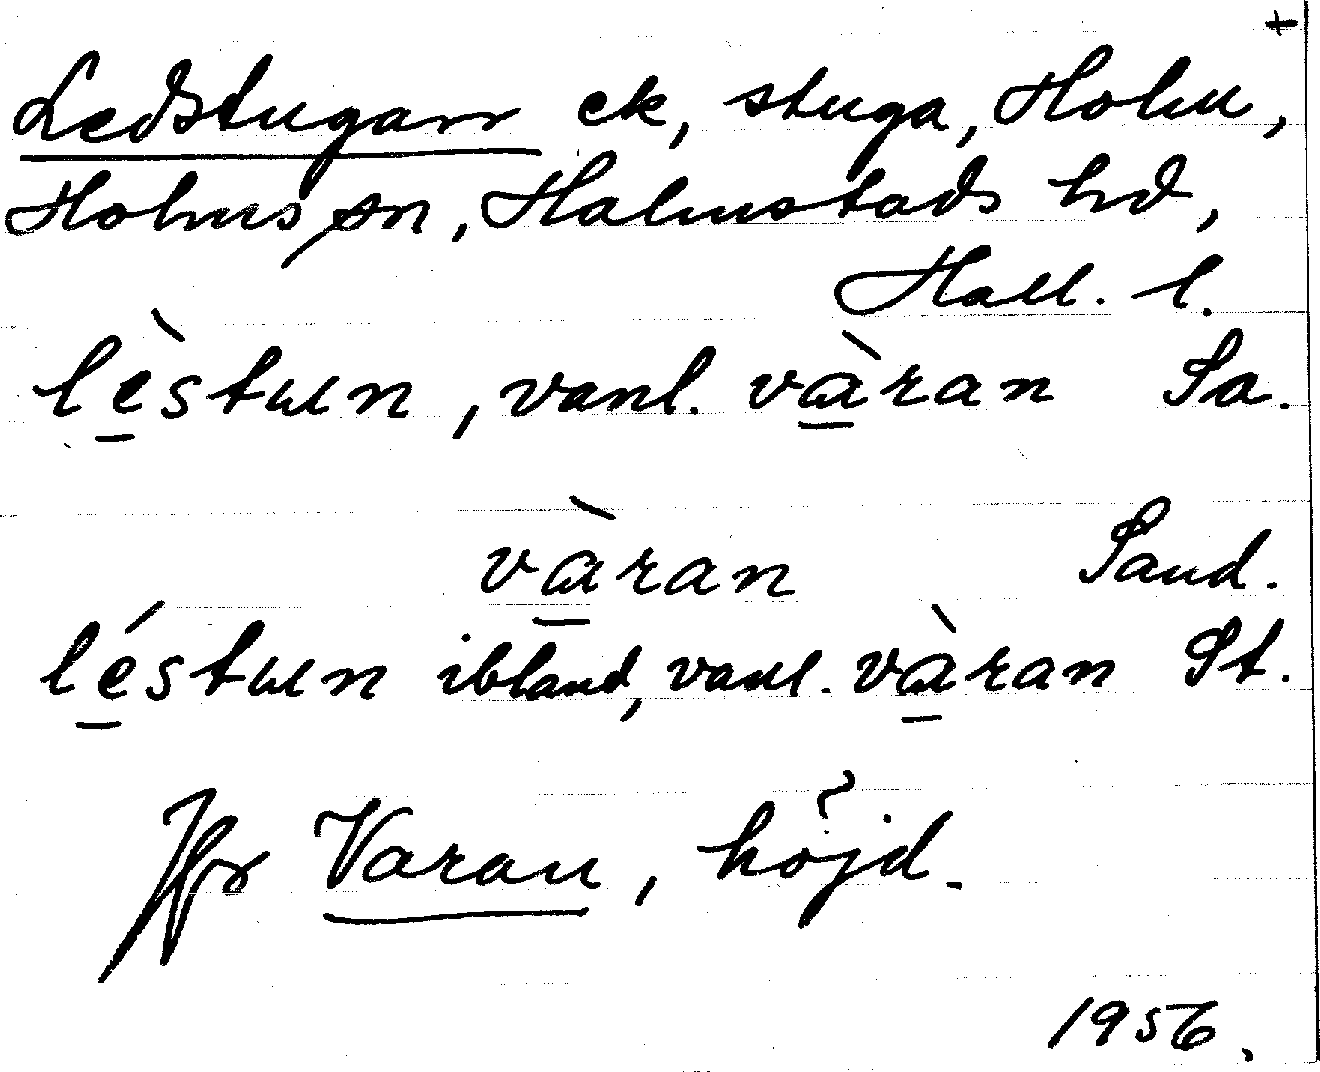 +
Ledstugan ek, stuga, Holm,
Holms sn, Halmstads hd,
Hall. l.
lè̱stɯn, vanl. vɑ̱̀ran Sa.
vɑ̱̀ran Sand.
lé̱stɯn ibland, vanl. vɑ̱̀ran St.
Jfr Varan, höjd.
1956.